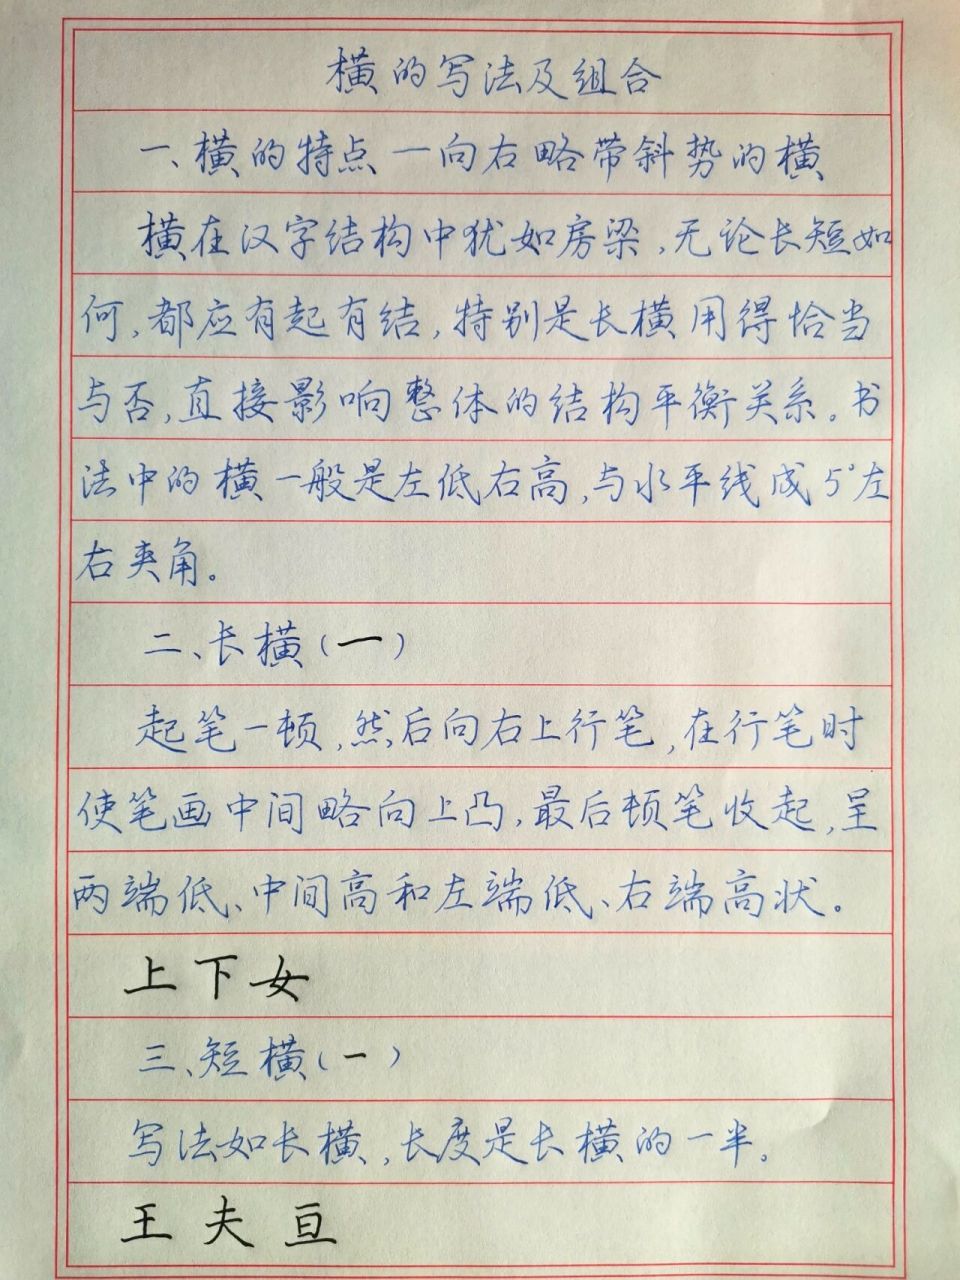 横的写法及组合
一、横的特点—向右略带斜势的横
横在汉字结构中犹如房梁,无论长短如
何,都应有起有结,特别是长横用得恰当
与否,直接影响整体的结构平衡关系。书
法中的横一般是左低右高,与水平线成5°左
右夹角。
二、长横(一)
起笔一顿,然后向右上行笔,在行笔时
使笔画中间略向上凸,最后顿笔收起,呈
两端低、中间高和左端低、右端高状。
上下女
三、短横(一)
写法如长横,长度是长横的一半。
王夫亘